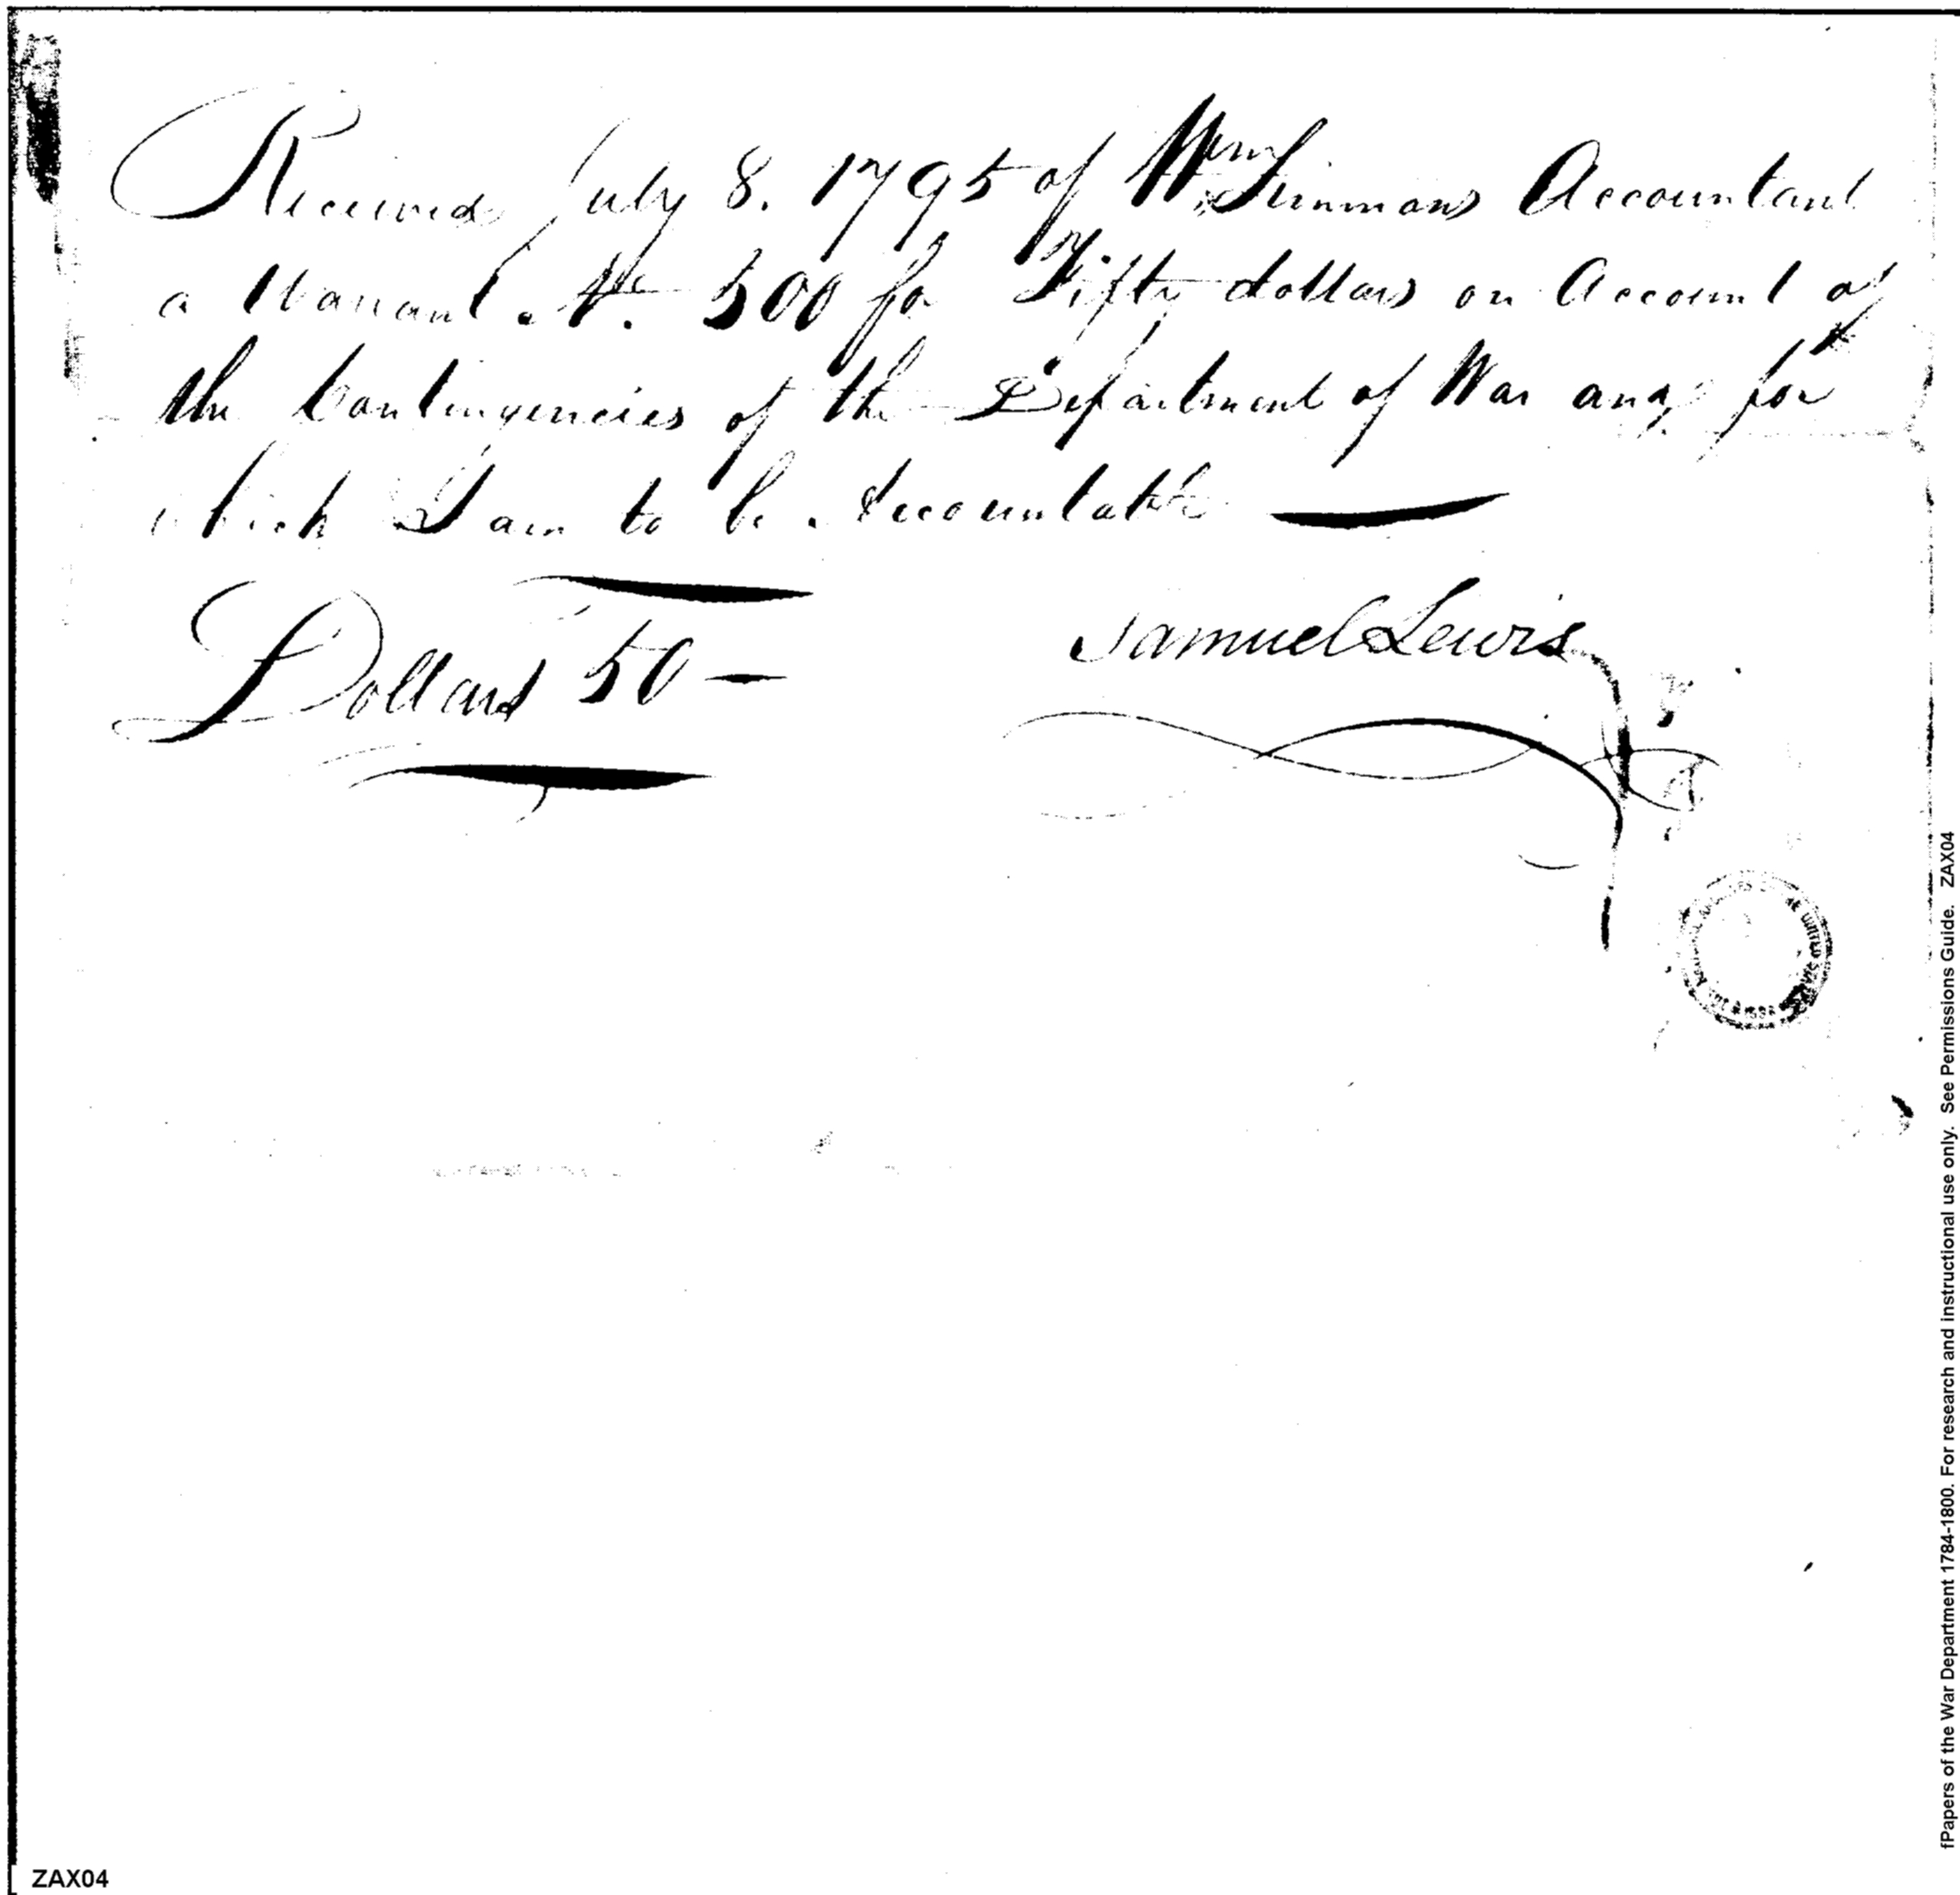 Received July 8. 1795 of Wm Simmons Accountant
a Warrant No. 500 for Fifty dollars on Account of
the Contingencies of the Department of War and for
which I am to be Accountable
Dollars 50
Samuel Lewis
ZAX04
fPapers of the War Department 1784-1800. For research and instructional use only. See Permissions Guide. ZAX04